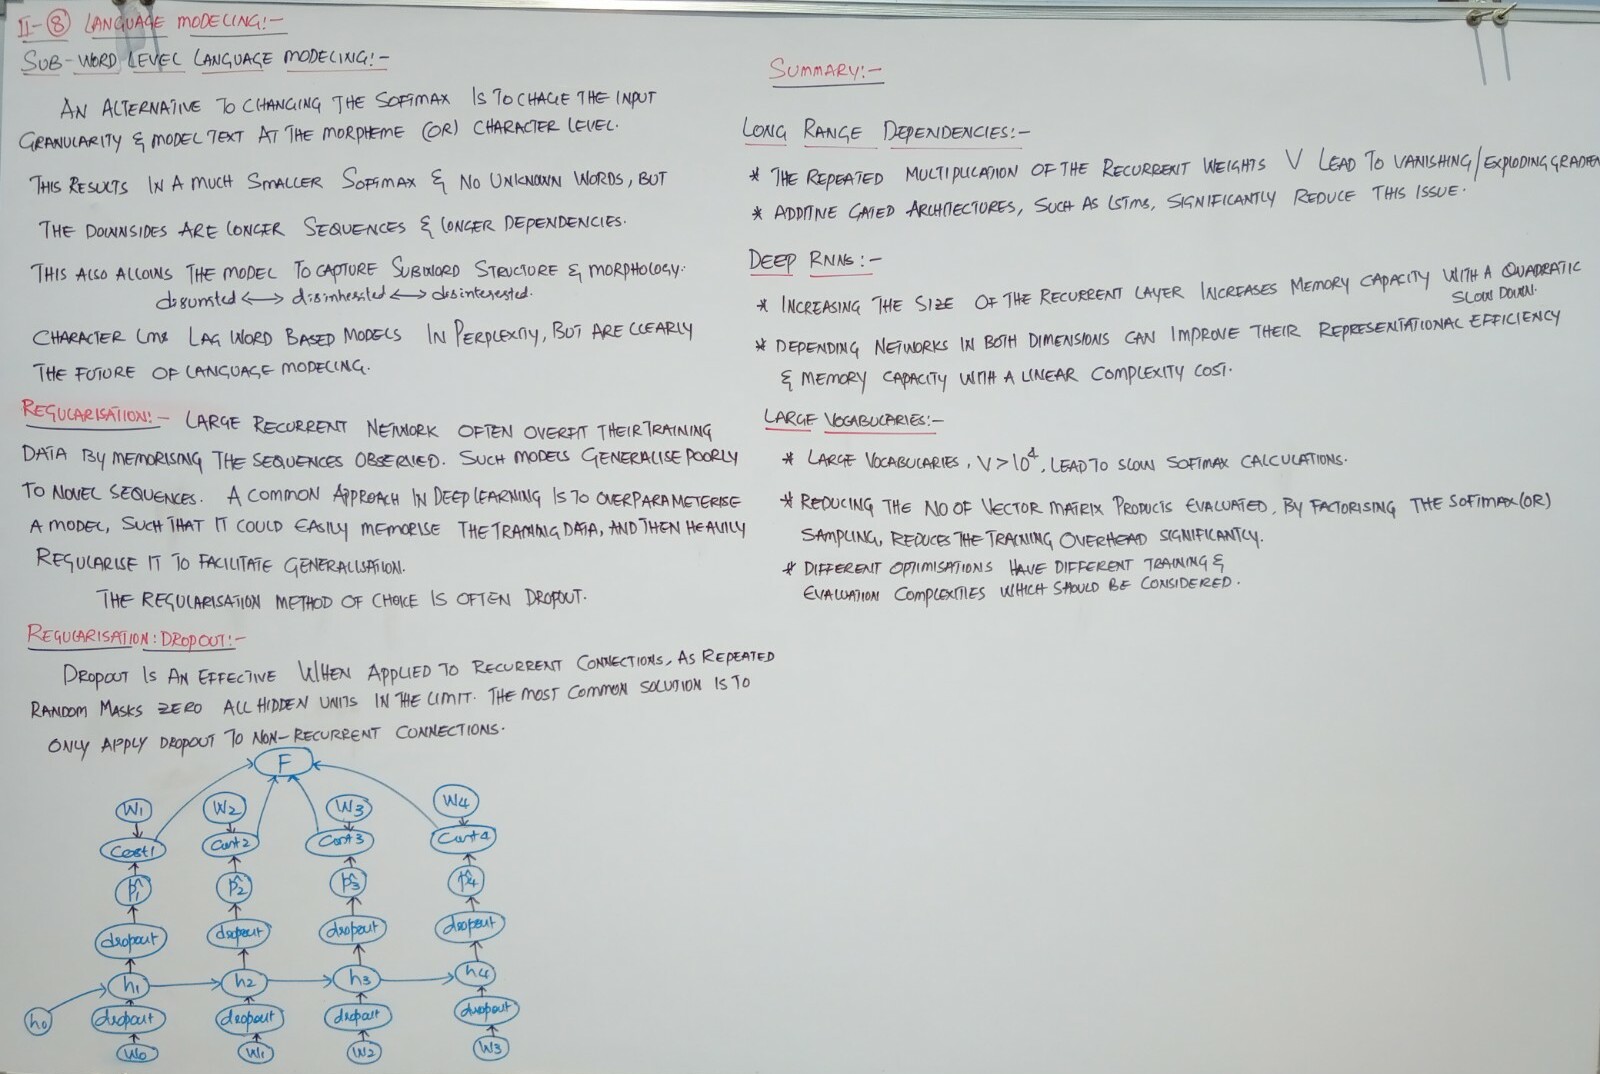 II-⑧ LANGUAGE MODELING:-
SUB-WORD LEVEL LANGUAGE MODELING:-
AN ALTERNATIVE TO CHANGING THE SOFTMAX IS TO CHAGE THE INPUT
GRANULARITY & MODEL TEXT AT THE MORPHEME (OR) CHARACTER LEVEL.
THIS RESULTS IN A MUCH SMALLER SOFTMAX & NO UNKNOWN WORDS, BUT
THE DOWNSIDES ARE LONGER SEQUENCES & LONGER DEPENDENCIES.
THIS ALSO ALLOWS THE MODEL TO CAPTURE SUBWORD STRUCTURE & MORPHOLOGY:
disunited <-> disinherited <-> disinterested.
CHARACTER LMs LAG WORD BASED MODELS IN PERPLEXITY, BUT ARE CLEARLY
THE FUTURE OF LANGUAGE MODELING.
REGULARISATION:- LARGE RECURRENT NETWORK OFTEN OVERFIT THEIR TRAINING
DATA BY MEMORISING THE SEQUENCES OBSERVED. SUCH MODELS GENERALISE POORLY
TO NOVEL SEQUENCES. A COMMON APPROACH IN DEEP LEARNING IS TO OVERPARAMETERISE
A MODEL, SUCH THAT IT COULD EASILY MEMORISE THE TRAINING DATA, AND THEN HEAVILY
REGULARISE IT TO FACILITATE GENERALISATION.
THE REGULARISATION METHOD OF CHOICE IS OFTEN DROPOUT.
REGULARISATION: DROPOUT:-
DROPOUT IS AN EFFECTIVE WHEN APPLIED TO RECURRENT CONNECTIONS, AS REPEATED
RANDOM MASKS ZERO ALL HIDDEN UNITS IN THE LIMIT. THE MOST COMMON SOLUTION IS TO
ONLY APPLY DROPOUT TO NON-RECURRENT CONNECTIONS.
F
W1 W2 W3 W4
Cost1 Cost2 Cost3 Cost4
p̂1 p̂2 p̂3 p̂4
dropout dropout dropout dropout
h0 h1 h2 h3 h4
dropout dropout dropout dropout
W0 W1 W2 W3
SUMMARY:-
LONG RANGE DEPENDENCIES:-
* THE REPEATED MULTIPLICATION OF THE RECURRENT WEIGHTS V LEAD TO VANISHING/EXPLODING GRADIEN
* ADDITIVE GATED ARCHITECTURES, SUCH AS LSTMs, SIGNIFICANTLY REDUCE THIS ISSUE.
DEEP RNNs:-
* INCREASING THE SIZE OF THE RECURRENT LAYER INCREASES MEMORY CAPACITY WITH A QUADRATIC
SLOW DOWN.
* DEPENDING NETWORKS IN BOTH DIMENSIONS CAN IMPROVE THEIR REPRESENTATIONAL EFFICIENCY
& MEMORY CAPACITY WITH A LINEAR COMPLEXITY COST.
LARGE VOCABULARIES:-
* LARGE VOCABULARIES, V>10⁴, LEAD TO SLOW SOFTMAX CALCULATIONS.
* REDUCING THE NO OF VECTOR MATRIX PRODUCTS EVALUATED, BY FACTORISING THE SOFTMAX (OR)
SAMPLING, REDUCES THE TRAINING OVERHEAD SIGNIFICANTLY.
* DIFFERENT OPTIMISATIONS HAVE DIFFERENT TRAINING &
EVALUATION COMPLEXITIES WHICH SHOULD BE CONSIDERED.